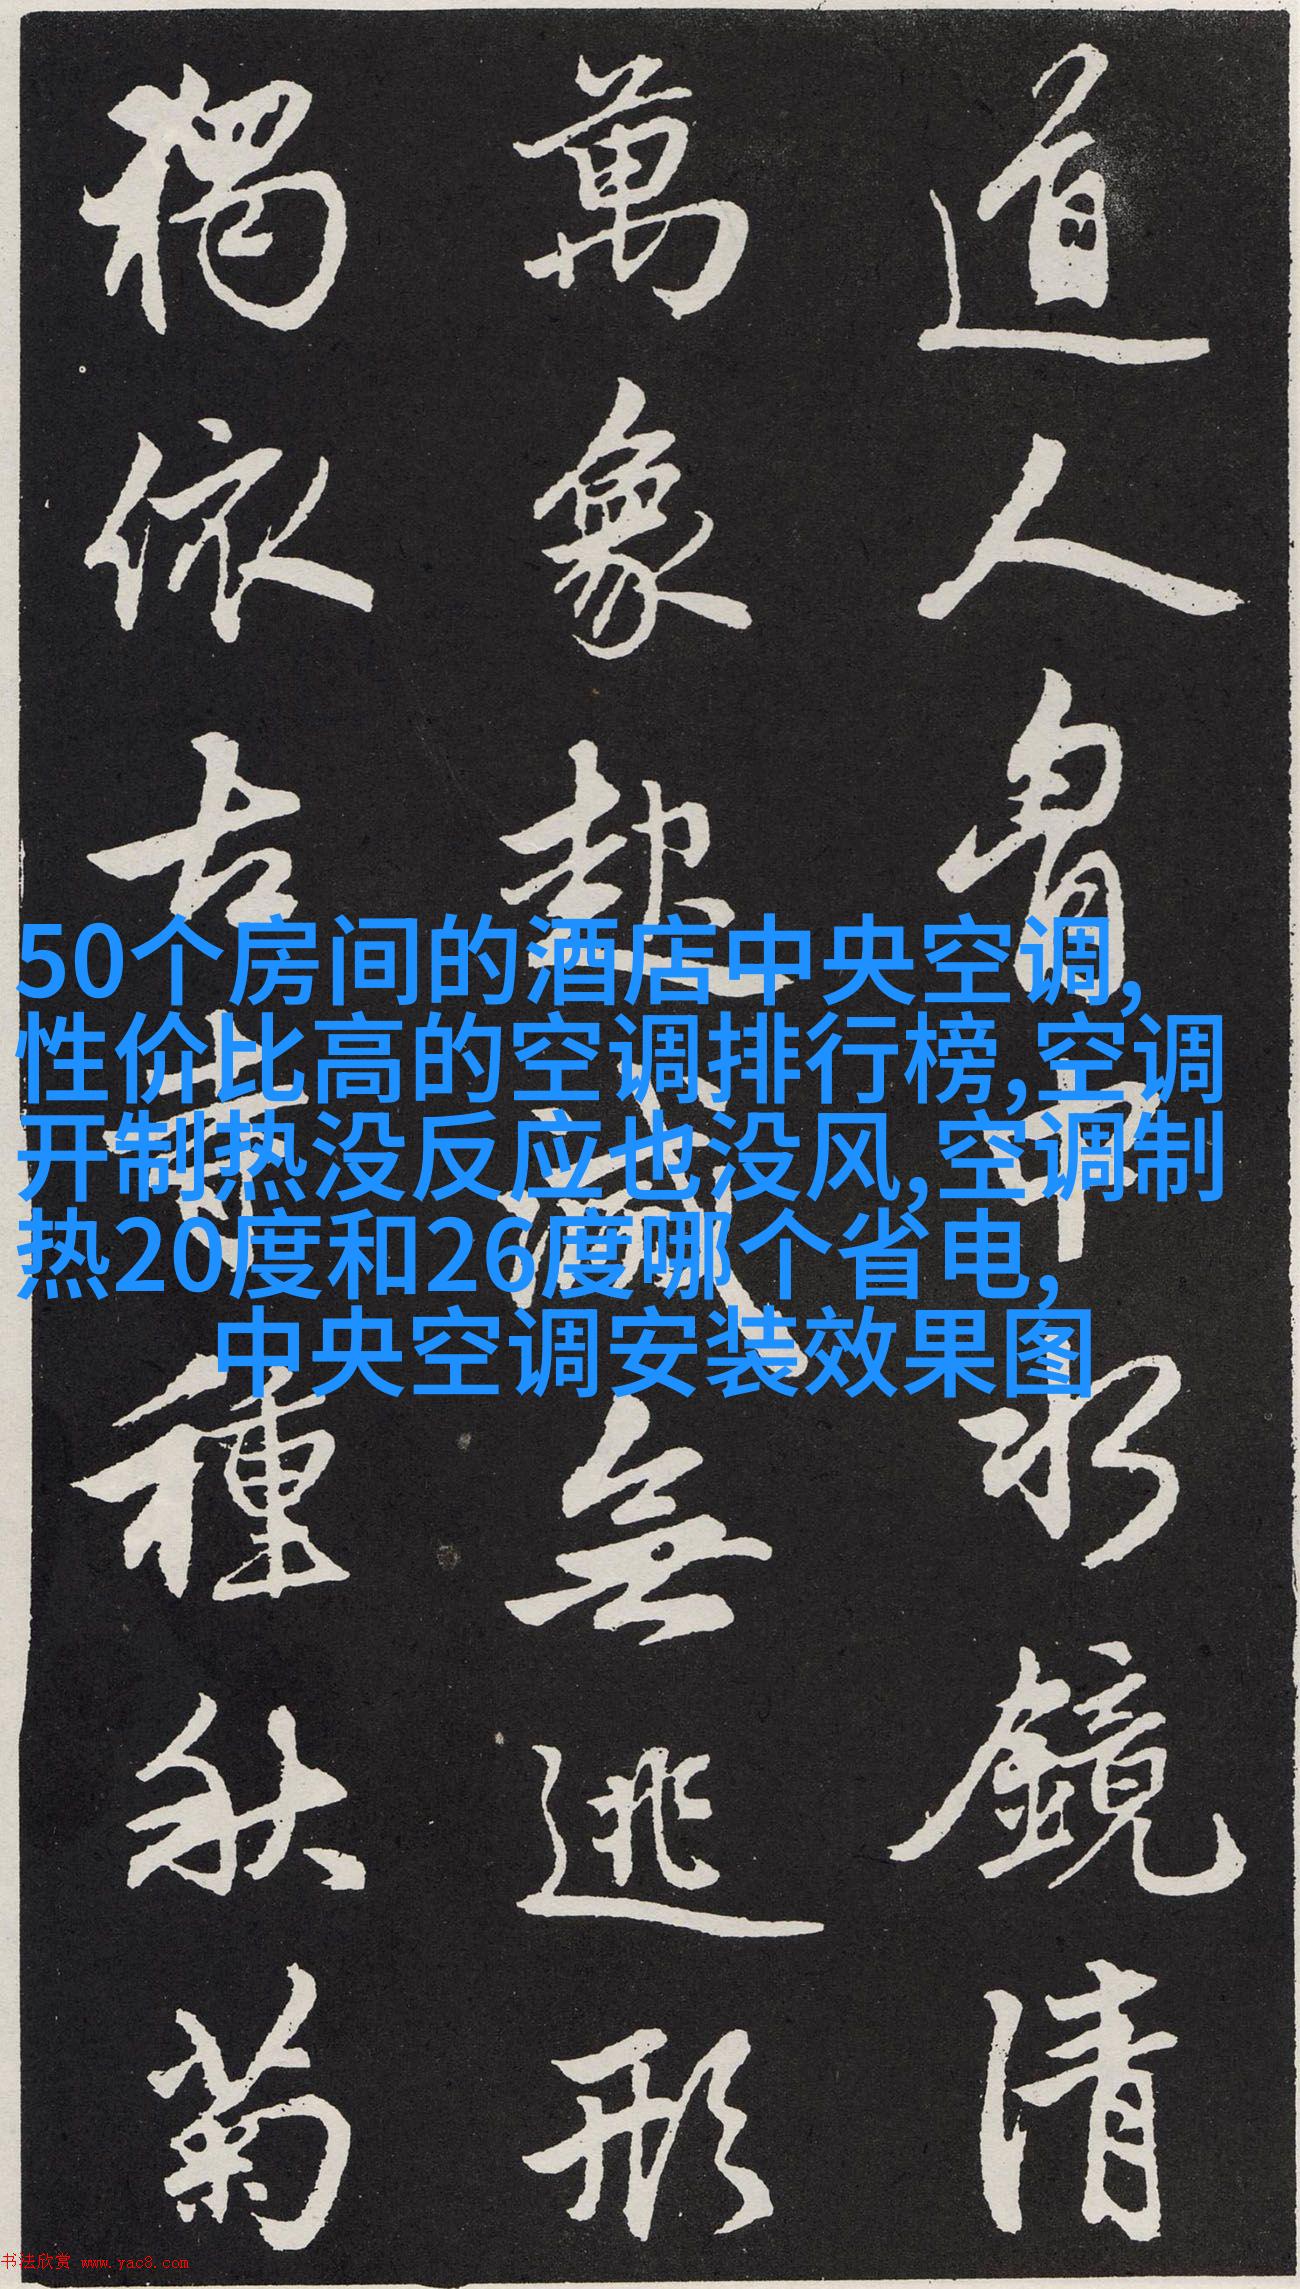 道人胷中水鏡清
萬象起滅無逃形
獨依古寺種秋菊
50个房间的酒店中央空调,
性价比高的空调排行榜,空调
开制热没反应也没风,空调制
热20度和26度哪个省电,
中央空调安装效果图
书法欣赏 www.yac8.com